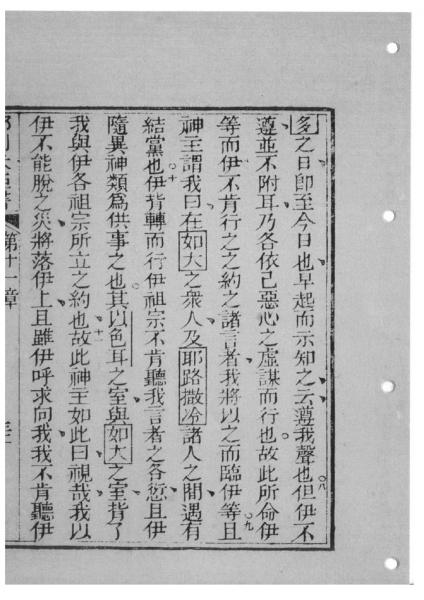 多之日卽至今日也早起而示知之云遵我聲也但伊不
遵並不附耳乃各依己惡心之虛謀而行也故此所命伊
等而伊不肯行之之約之諸言者我將以之而臨伊等且
神主謂我曰在如大之衆人及耶路撒冷諸人之間遇有
結黨也伊背轉而行伊祖宗不肯聽我言者之各愆且伊
隨異神類爲供事之也其以色耳之室與如大之室背了
我與伊各祖宗所立之約也故此神主如此曰視哉我以
伊不能脫之災將落伊上且雖伊呼求向我我不肯聽伊
第十一章
八
九
十
十一